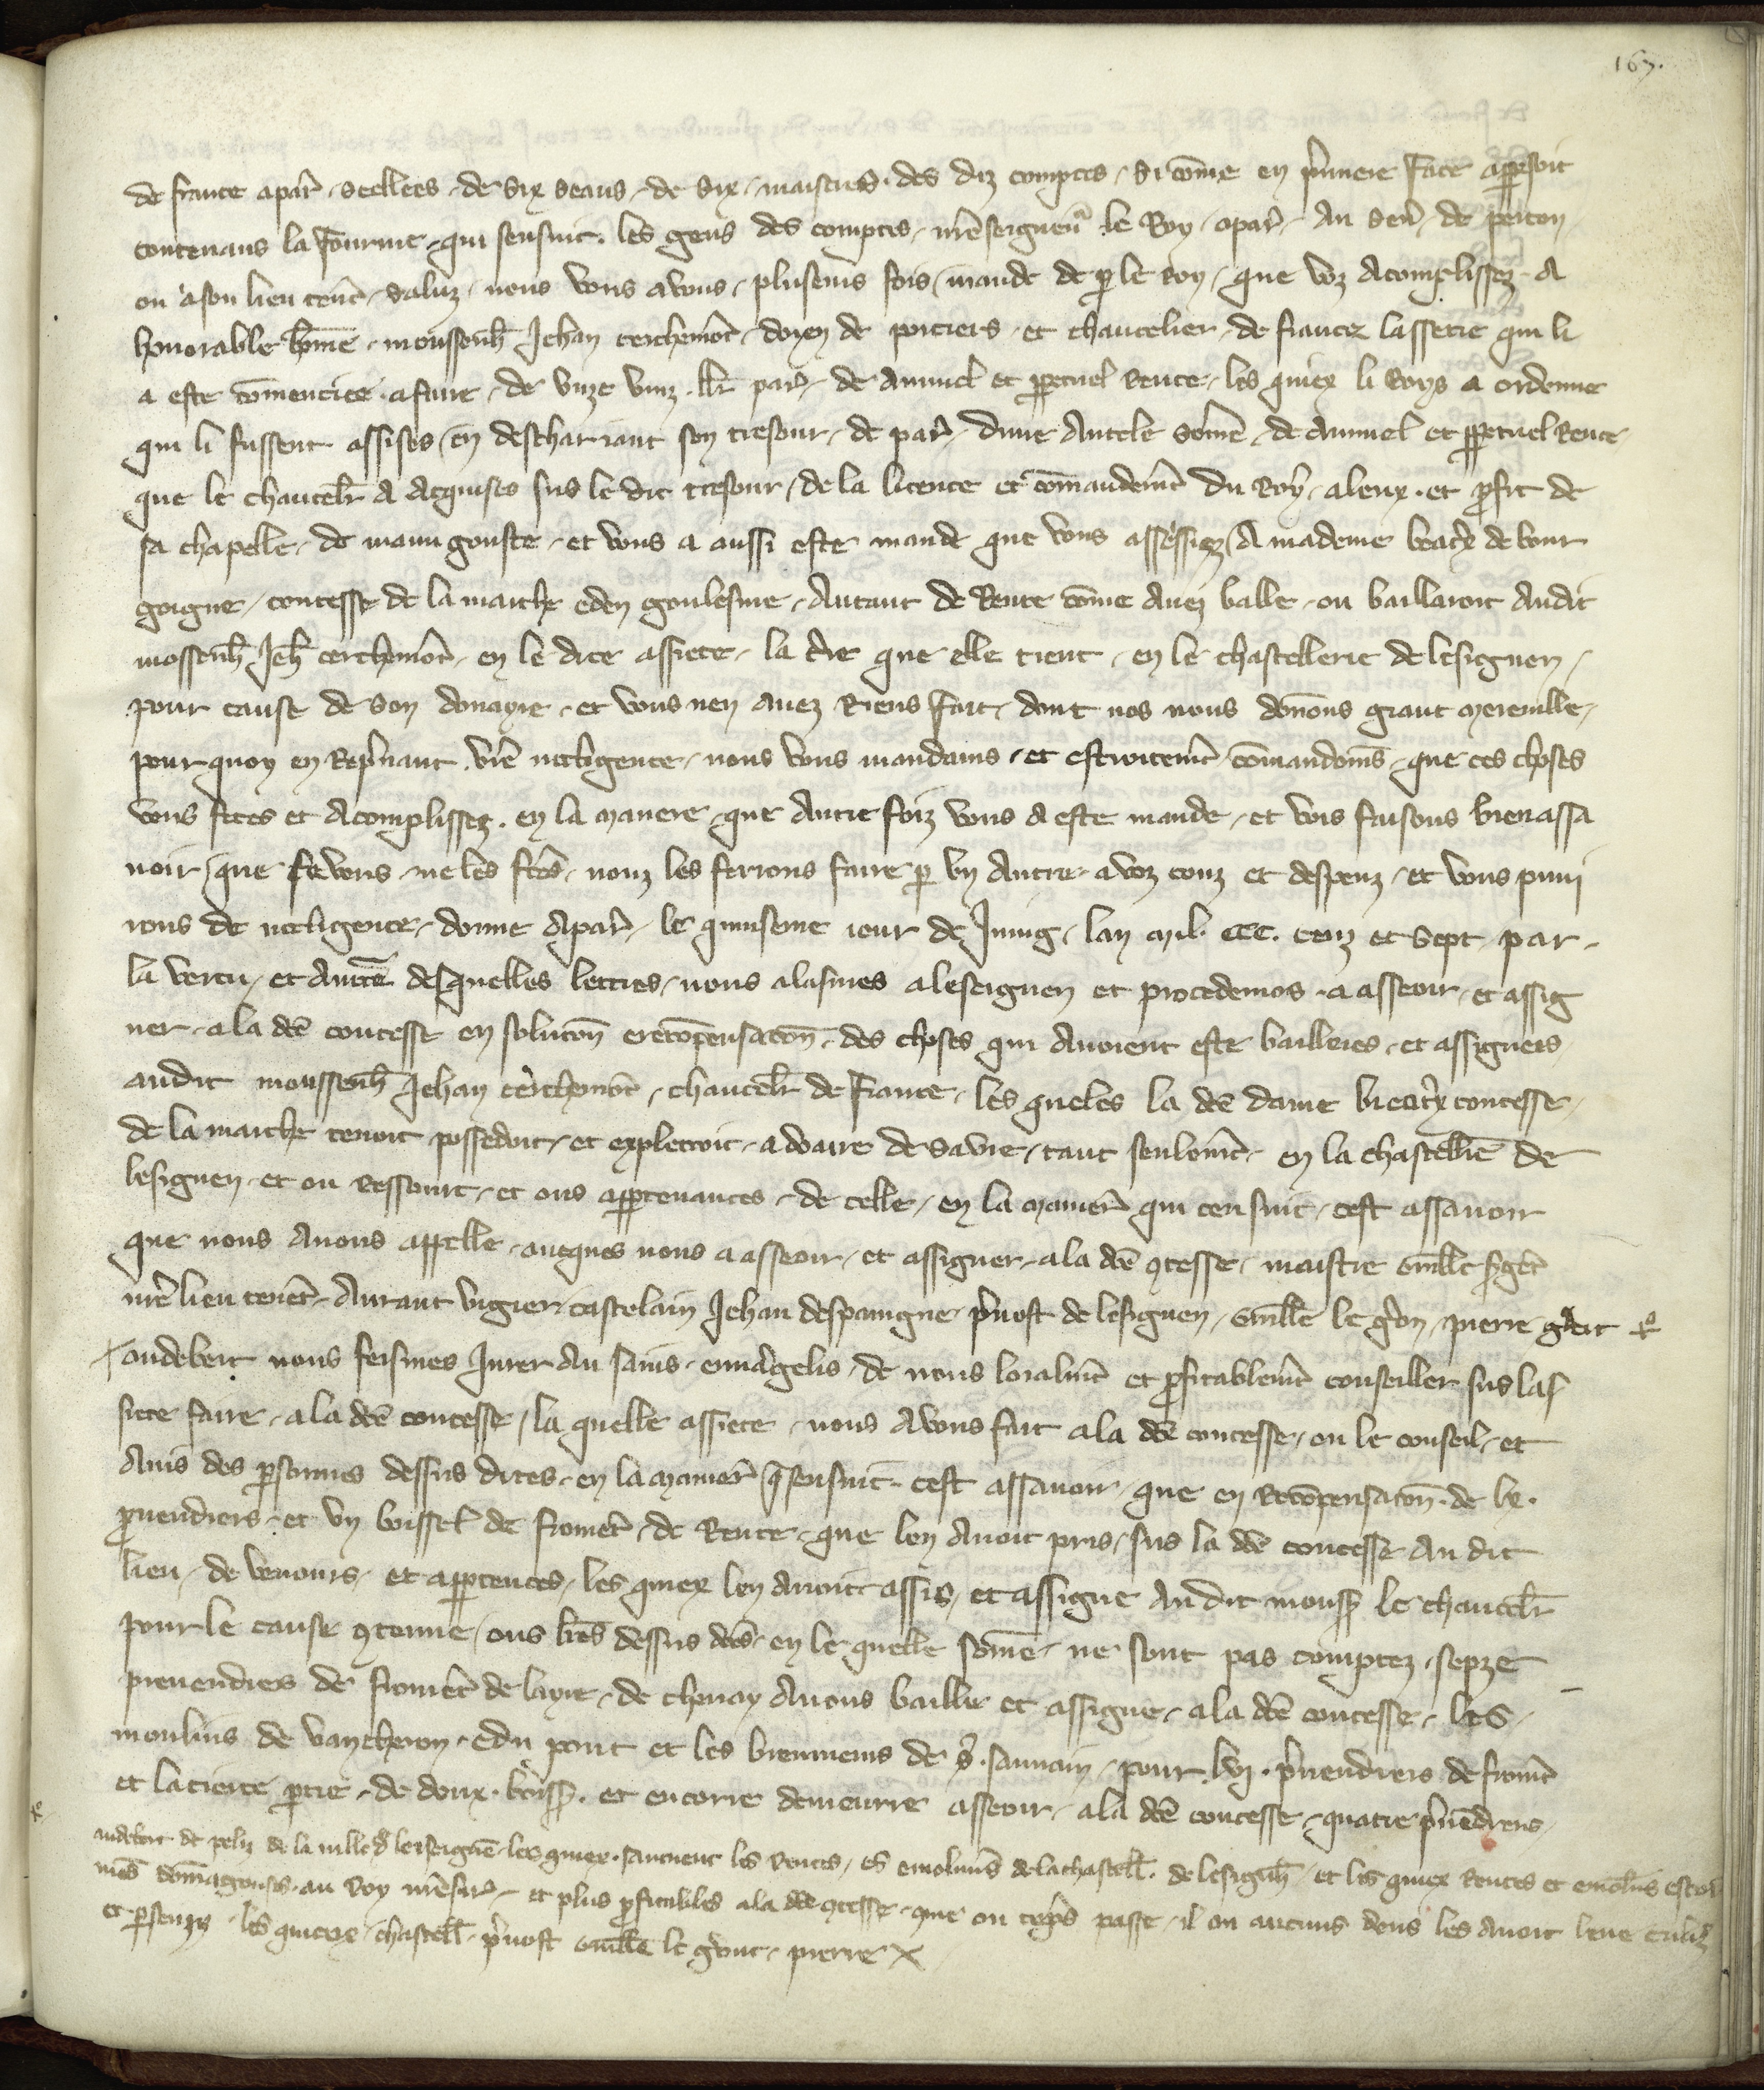 167.
de france apar̃ seellees de six seaus de six maistres des diz comptes si cõme en p̃miere face apparsoit
contenans la fourme qui sensuit. les gens des comptes nr̃e seigneur le Roy apar̃ Au sen̄ de peitou
ou a son lieu ten̄t saluz nous vous avons plusenis fois mande de p le Roy que voz Acomplissez A
honorable hõme moussenh̃ Jehan cerchem̃ot doyen de poitiers et chancelier de france lassete qui li
a este cõmenciee a faire de unze vinz llr̃ par̃ de annuel et ppetuel rente les quiex li Roys a ordenne
qui li fussent assises en deschariant son tresour de par̃ dune Autele sõme de annuel et ppetuel Rente
que le chancelr̃ A Aquises sus le dit tresour de la licence et cõmandem̃t du Roy a leux et pfit de
sa chapelle de maun gouste et vous a aussi este mande que vous assessiez A madame beatx̃ de bour
goigne contesse de la marche eden goulesme Autant de Rente cõme Avez balle ou baillaroit Audit
mossenh̃ Jeh̃ cerchem̃ot en le dite assiete la tr̃e que elle tient en le chastellerie de lesiguen
pour cause de son douayre et vous nen avez Riens fait dont nos nous dõnons grant merueille
pour quoy en Rep̃nant vr̃e necligence nous vous mandams et estroitem̃t cõmandoms que ces choses
vous fetes et Acomplissez en la manere que Autre foiz vous a este mande et vois faisons bien assa
uoir que se vous ne les ft̃es nouz les ferions faire p un Autre a voz couz et despenz et vous puni
rons de necligence donne Apar̃ le quinseme iour de Juing lan mil. ccc. vinz et sept par
la vertu et Auct̃e desquelles lettres nous alasmes a leseiguen et procedemos a asseoir et assig
ner a la dc̃e contesse en solucõn e recõpensacõn des choses qui Avoient este bailleies et assigneis
audit moussenh̃ Jehan cerchem̃ot chancelr̃ de France les queles la dc̃e dame bieatx̃ contesse
de la marche tenoit possedoit et explettoit a doaire de sa vie tant seulem̃t en la chastellie de
lesiguen et ou ressourt et ous appartenances de celle en la manier̃ qui cen suit cest assavoir
que nous Avons appelle avecques nous a asseoir et assigner a la dc̃e 9tesse maistre Guill̃e
nr̃e lieu ten̄t Aurant vigier castelain Jehan despaingne p̃uost de lesiguen Guill̃e le gron pierre
audebert nous feismes Jurer Au sains euuãgelis de nous loialm̃t et pfitablem̃t conseiller sus las
siete faire a la dc̃e contesse la quelle assiete nous Avons fait a la dc̃e contesse ou le conseil et
Avis des psonnes dessus dites en la manier̃ q̃ sensuit cest assavoir que en Recõpensacõn de lx.
puendiers et un boissel de froment de Rente que len Avoit pris sus la dc̃e contesse Au dit
lieu de venours et appartences les quiex len Avoit assis et assigne Au dit mons̃ le chancelr̃
pour le cause 9tenue ous lr̃es dessus dc̃es en le quelle sõme ne sont pas comptez sepze
preuendiers de fromẽt de layre de chenay Avons baille et assigne a la dc̃e contesse les
moulins de vaucheron edu pont et les biennenis de s̃. sauuain pour lvj. p̃uendiers de fromẽt
et la tierce ptie de doux boiss̃. et encorre demeurre asseoir a la dc̃e contesse quatre p̃uẽdiers
audebert de la uille de lesseignẽ les quiex sauuent les Rentes es emolumẽs de la chastell̃. de lesiguh̃ et les quiex Rentes et emolũs
mẽs dõmagouses au Roy nr̃e sir̃ et plus pfitables a la dc̃e 9tesse que ou tẽps passe il ou aucuns deus les Avoit leue
et les quiexx chastell̃ p̃uost Guill̃e le gront pierre